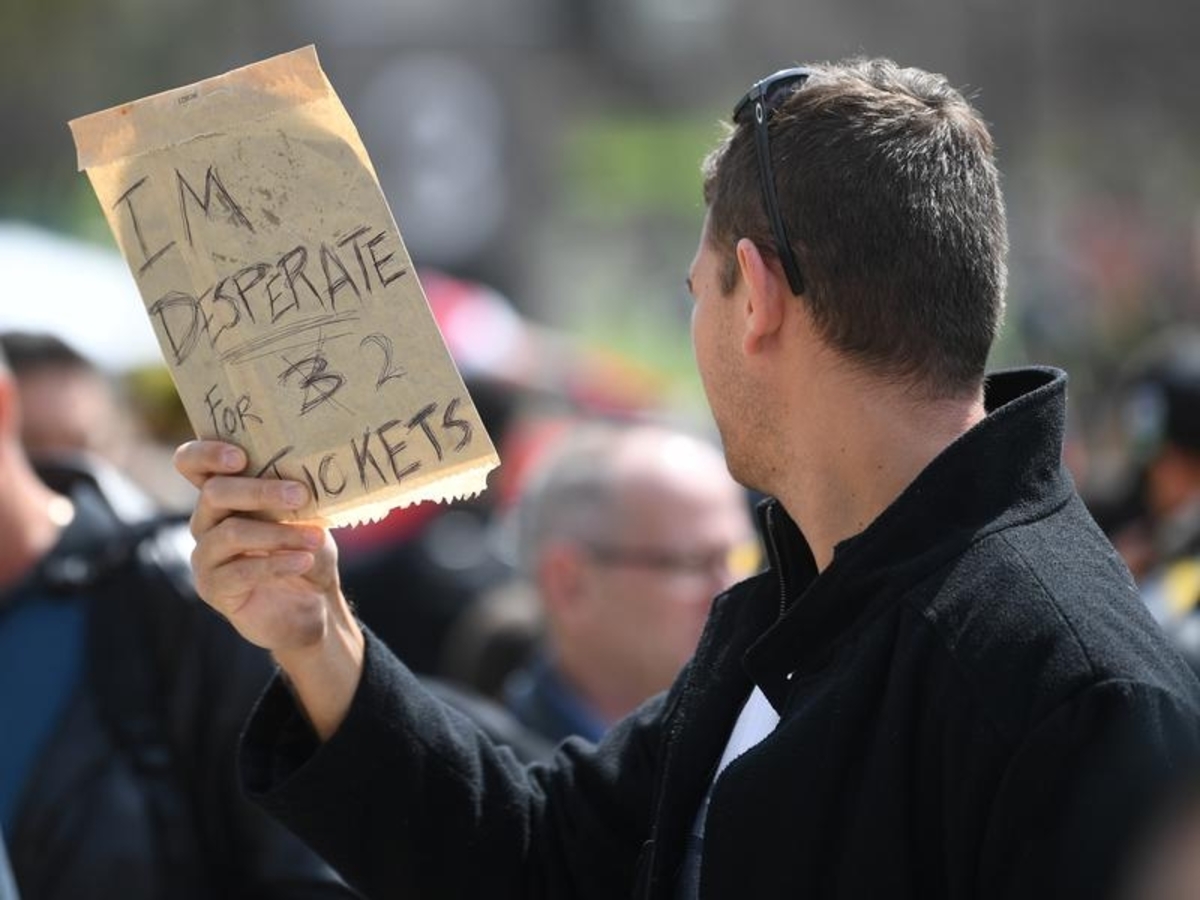 I M
DESPERATE
FOR 3 2
TICKETS